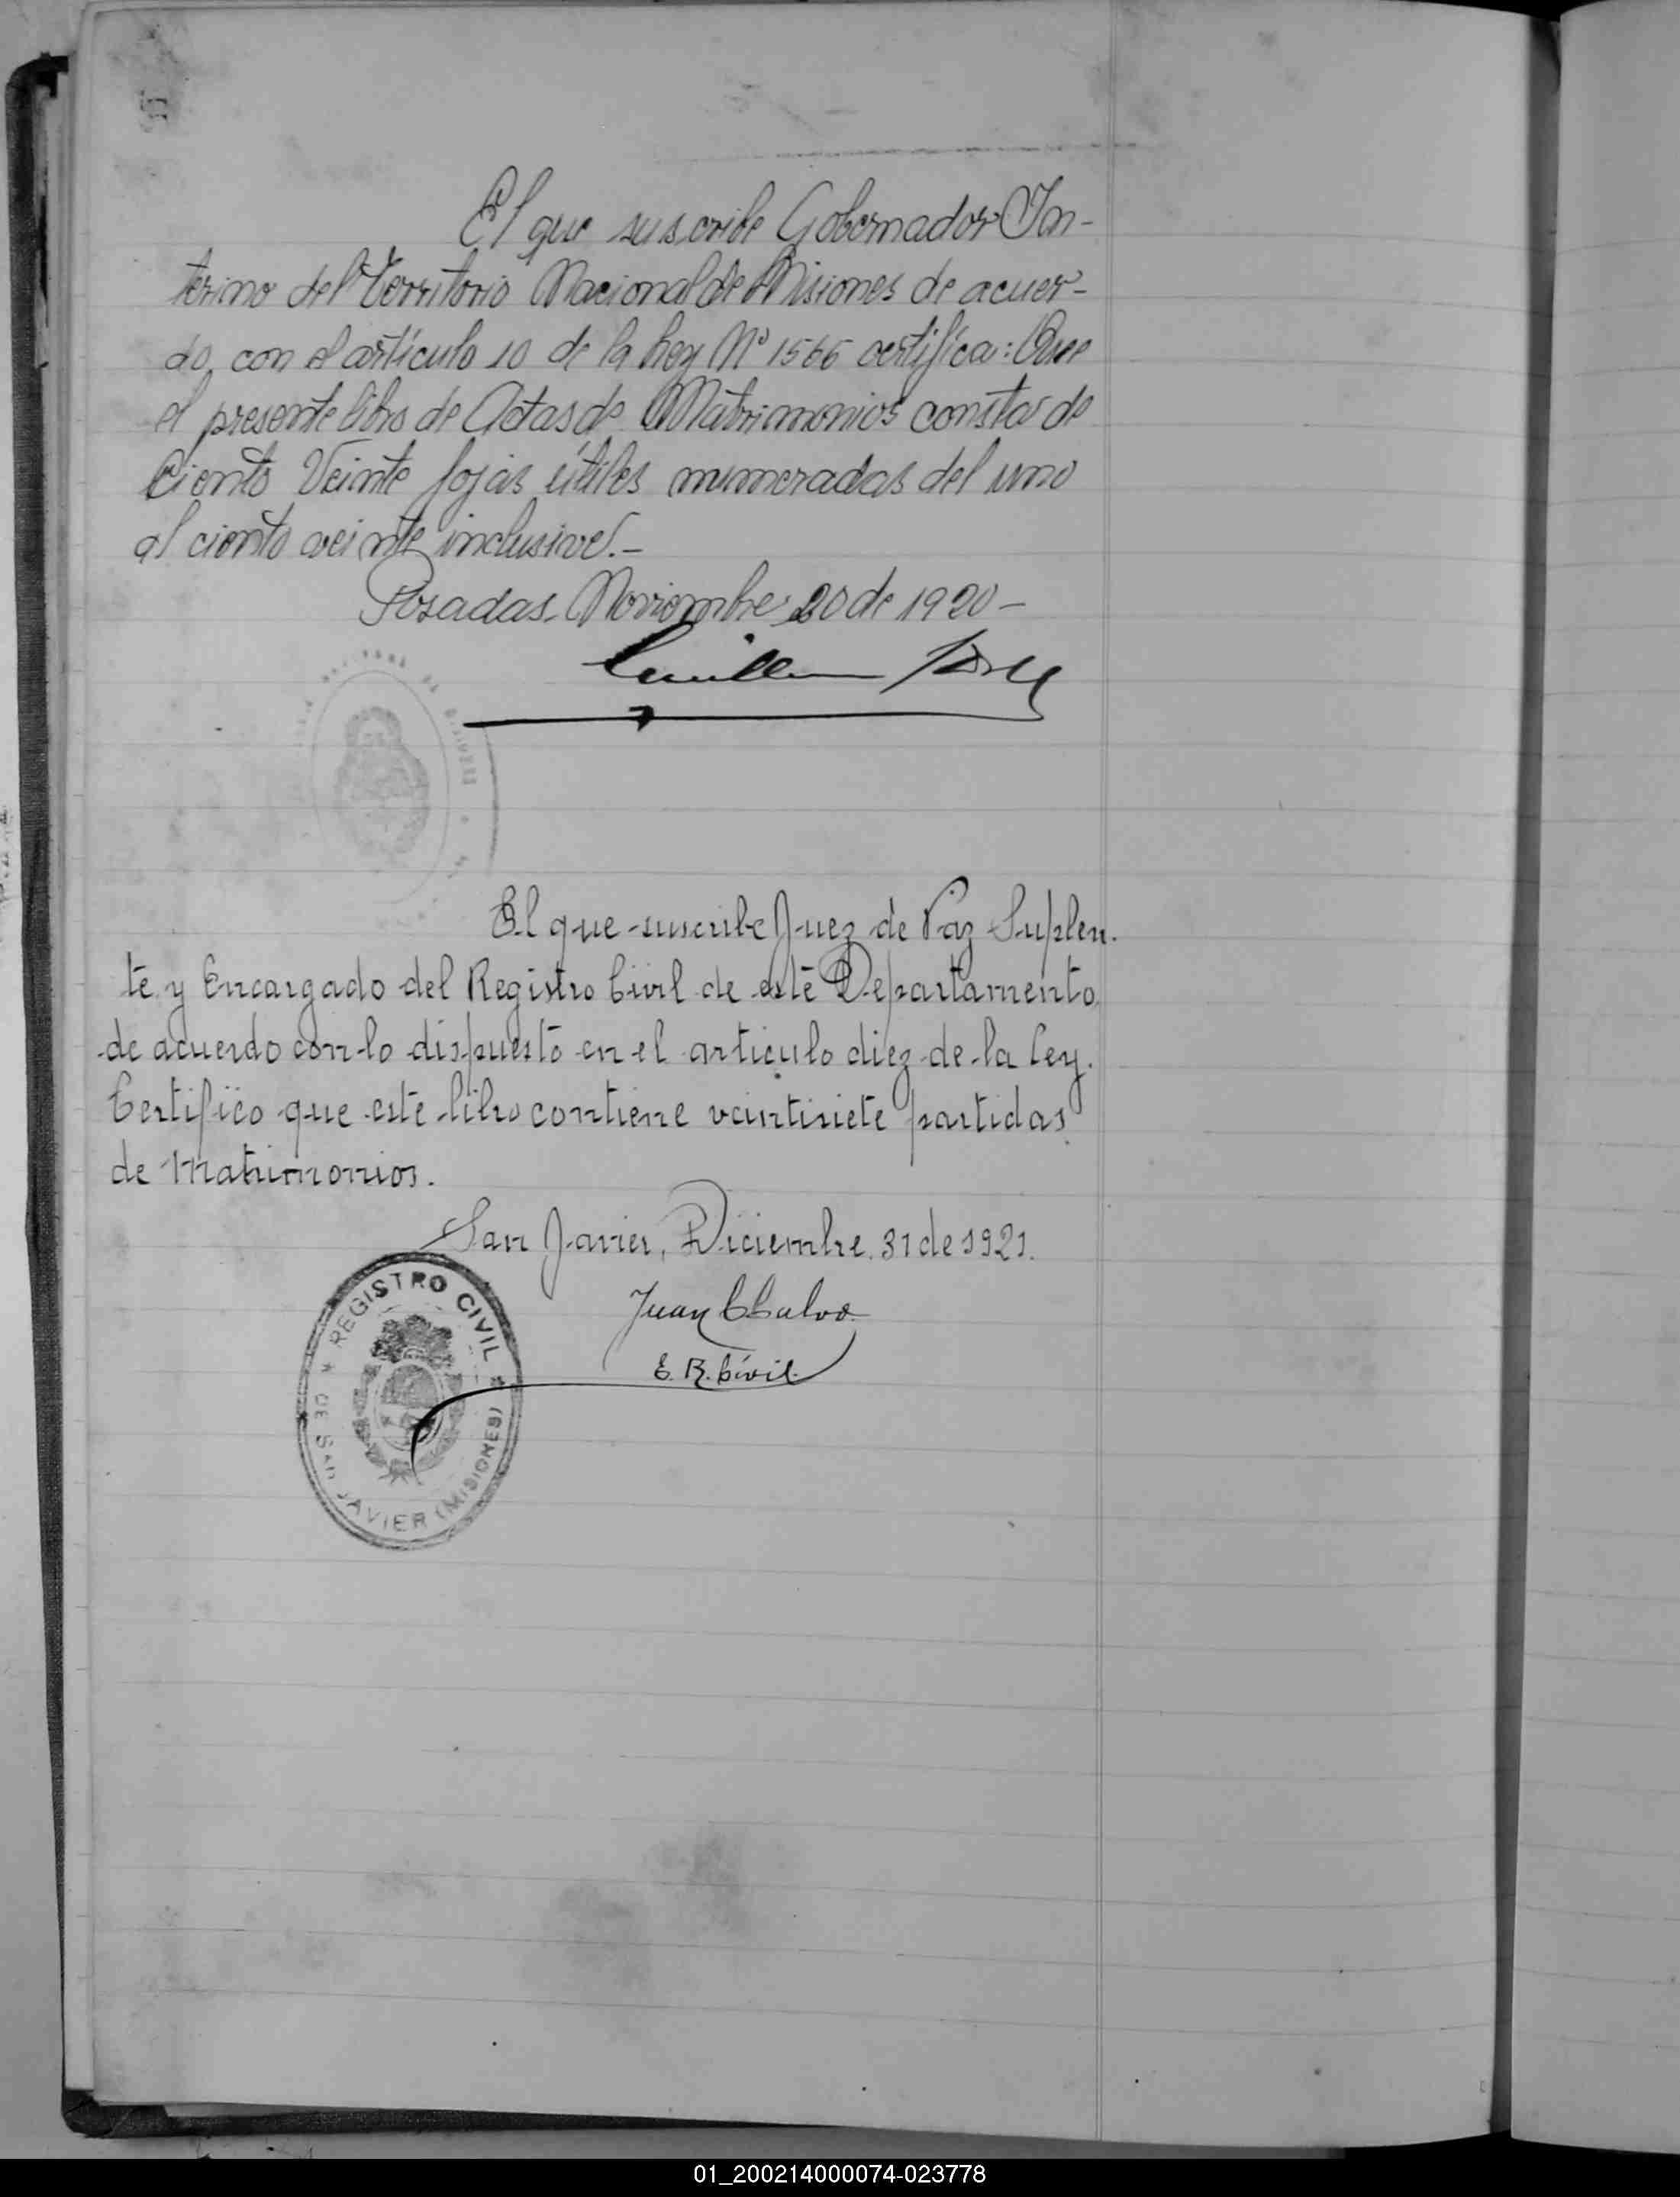 El que suscribe Gobernador In-
terino del Territorio Nacional de Misiones de acuer-
do con el artículo 10 de la Ley Nº 1565 certifica: Que
el presente libro de Actas de Matrimonios consta de
Ciento Veinte fojas útiles numeradas del uno
al ciento veinte inclusive.-
Posadas, Noviembre 20 de 1920-
El que suscribe Juez de Paz Suplen-
te y Encargado del Registro Civil de este Departamento,
de acuerdo con lo dispuesto en el articulo diez de la Ley.
Certifico que este libro contiene veintisiete partidas
de Matrimonios.
San Javier, Diciembre 31 de 1921.
Juan C Calvo
E. R. Civil.
REGISTRO CIVIL
DE SAN JAVIER (MISIONES)
01_200214000074-023778